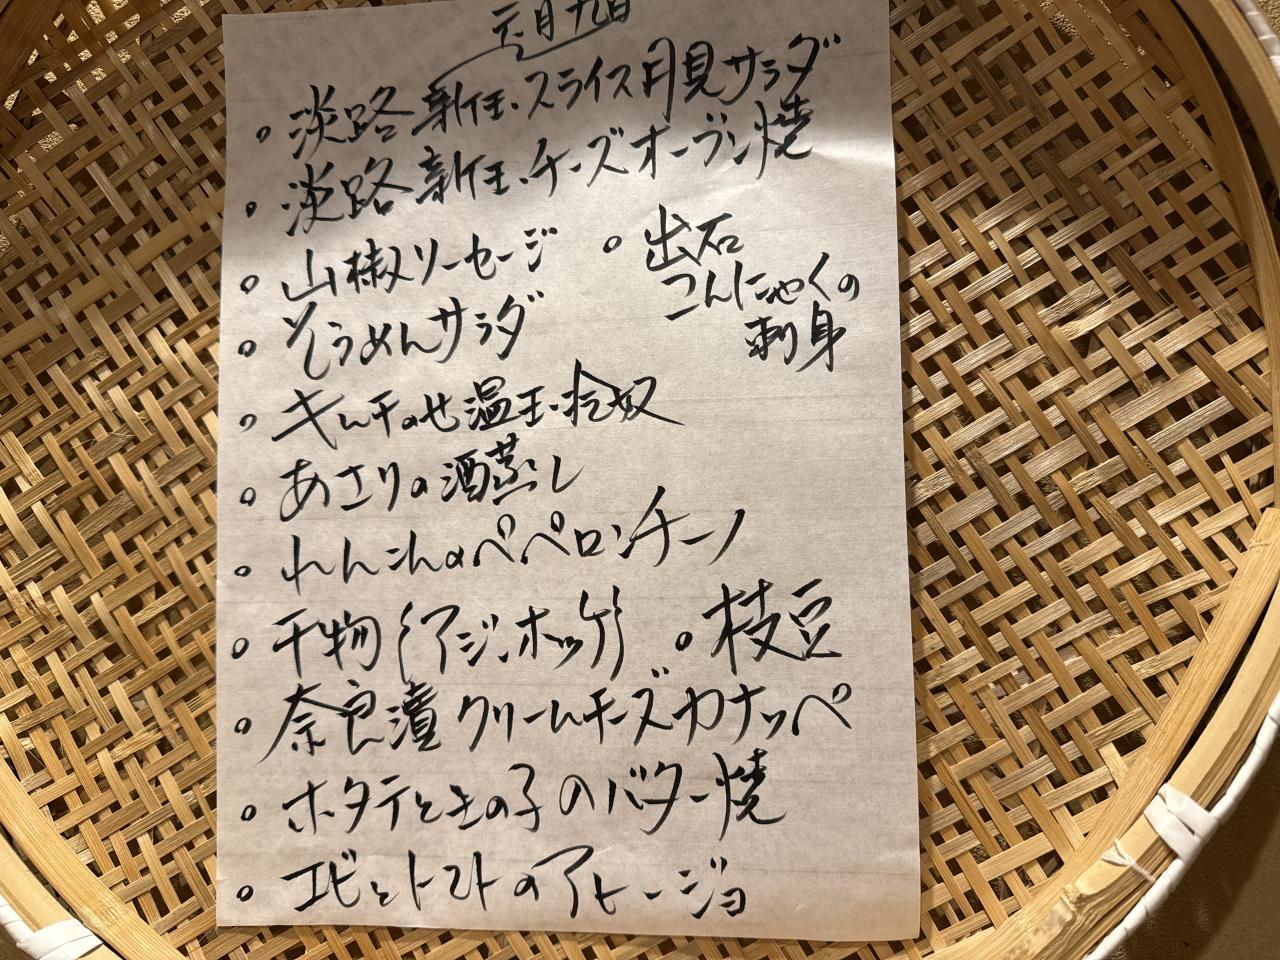 六月九日
淡路新玉.スライス月見サラダ
淡路新玉.チーズオーブン焼
山椒ソーセージ
出石
こんにゃくの
刺身
そうめんサラダ
キムチのせ温玉冷奴
あさりの酒蒸し
れんこんのペペロンチーノ
干物(アジ.ホッケ)
枝豆
奈良漬クリームチーズカナッペ
ホタテときの子のバター焼
エビとトマトのアヒージョ